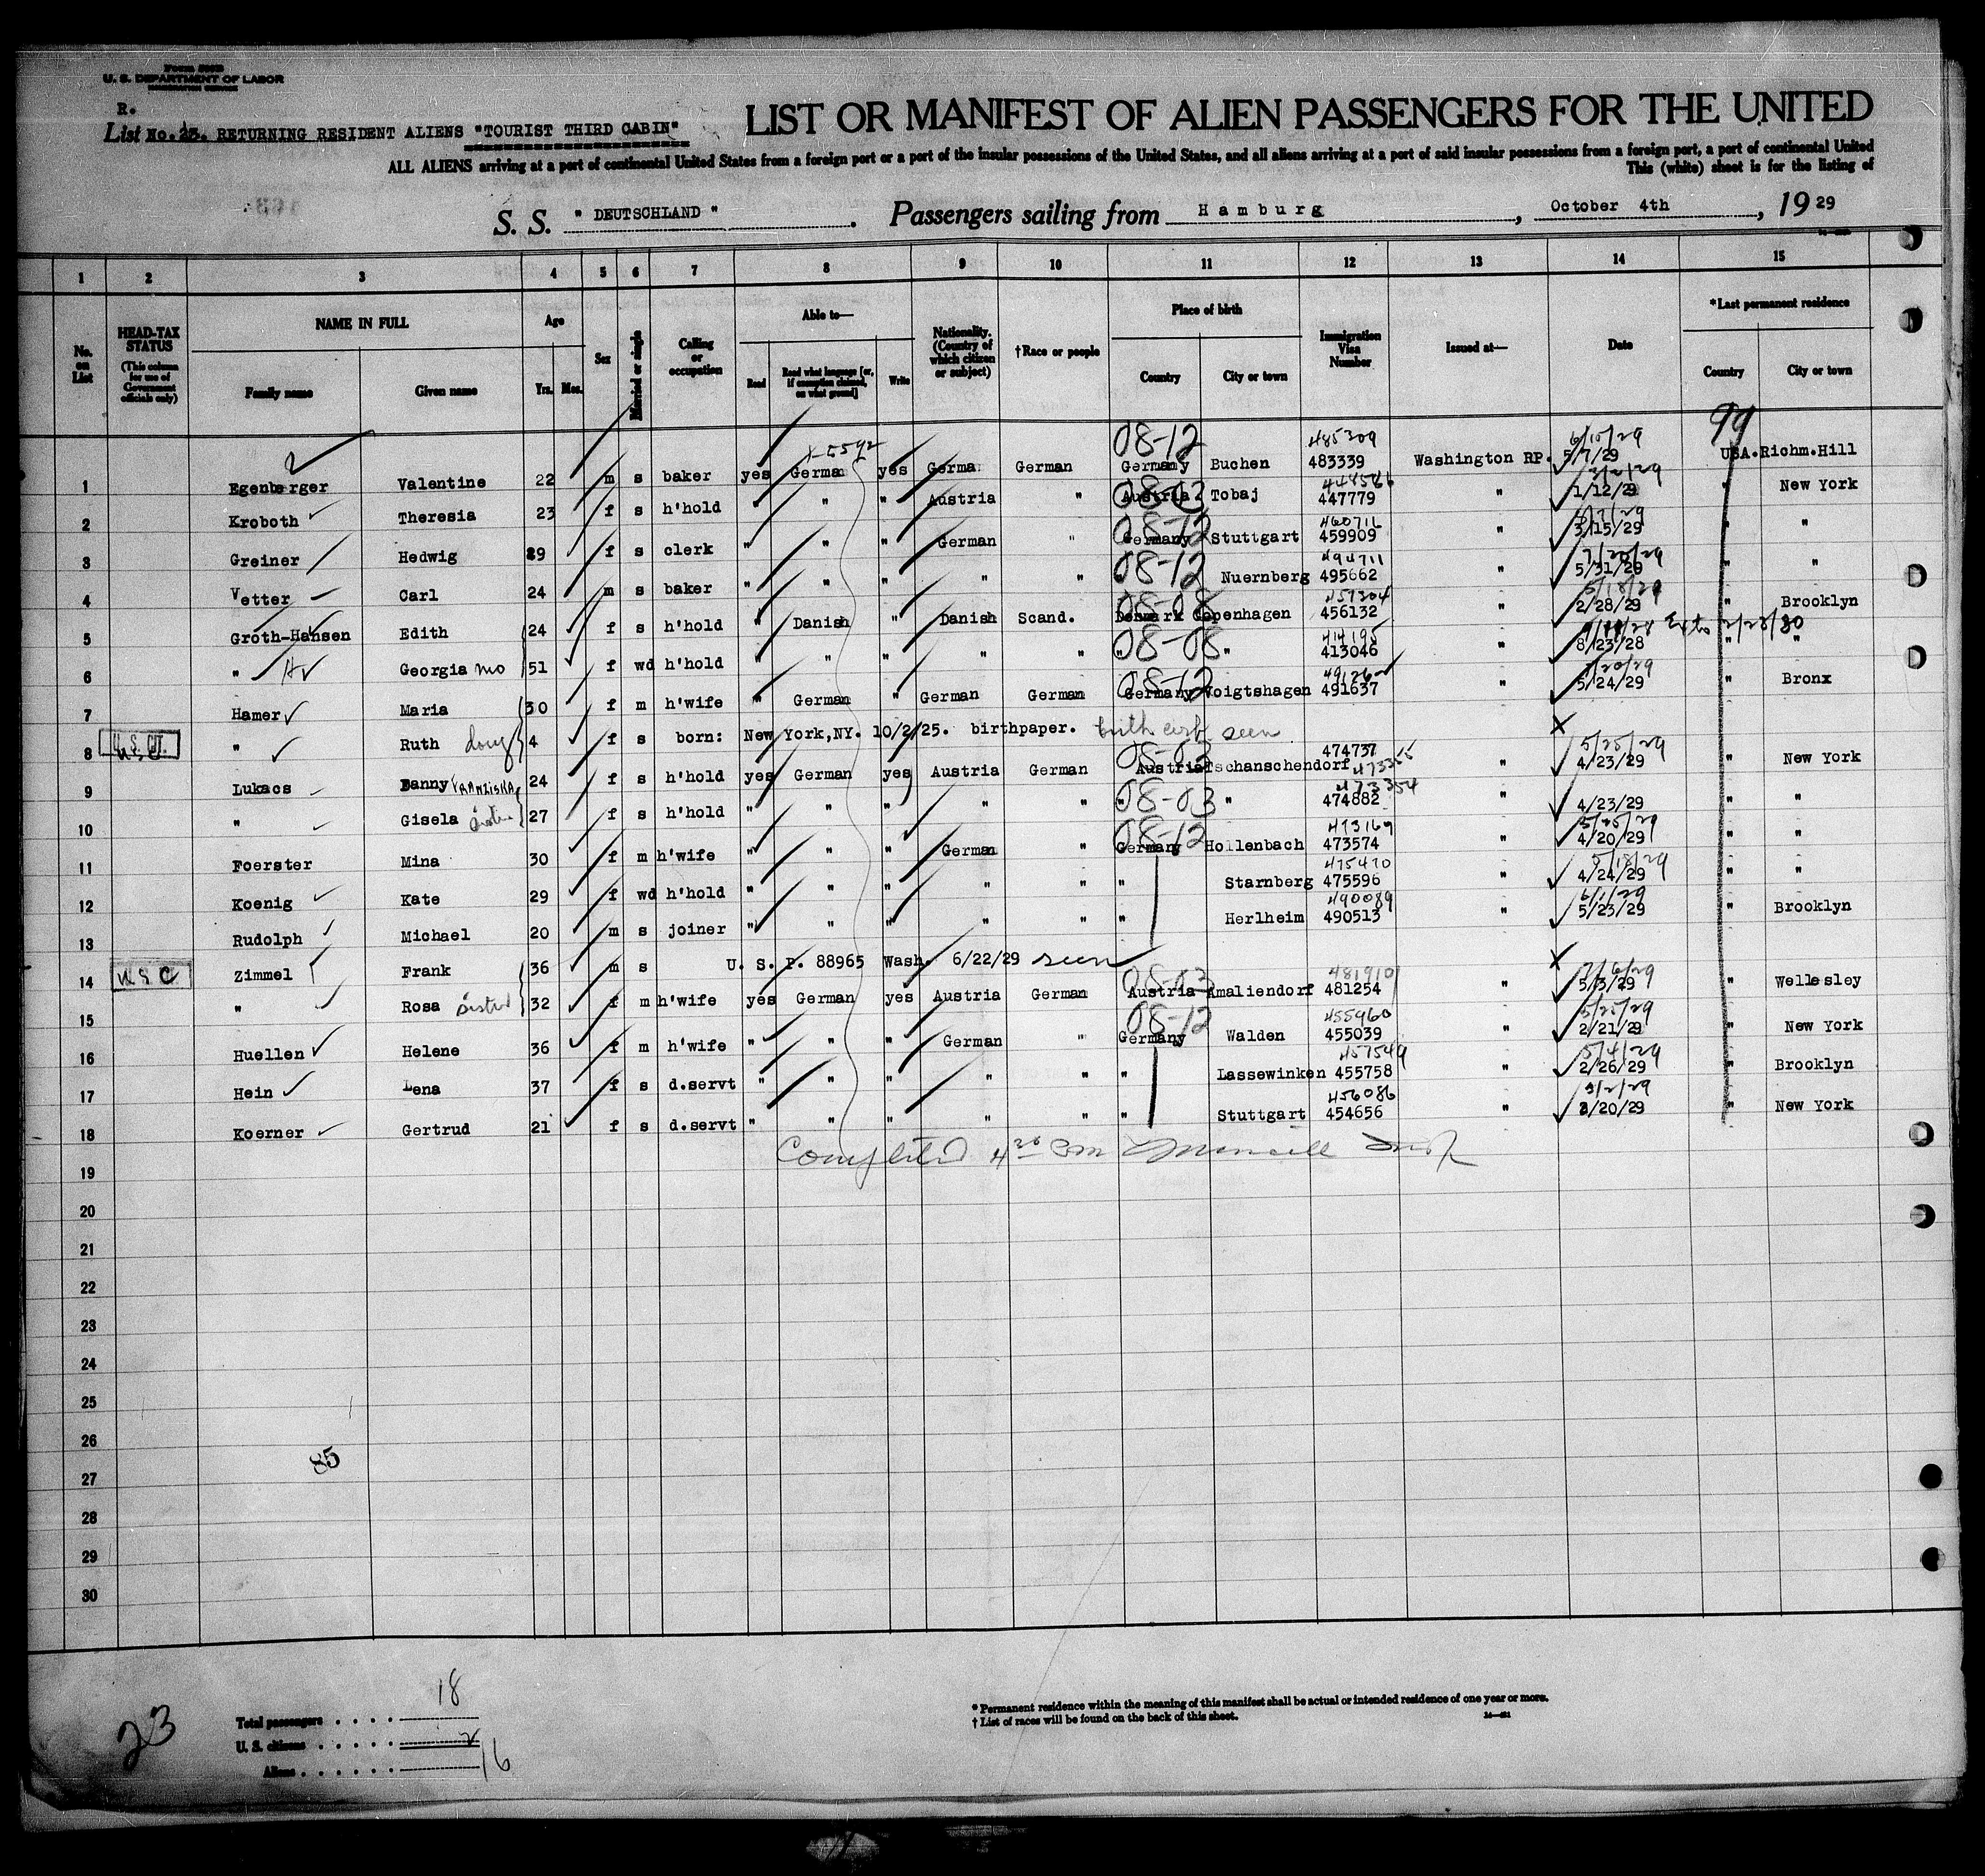 U. S. DEPARTMENT OF LABOR
R.
List No. 23. RETURNING RESIDENT ALIENS "TOURIST THIRD CABIN"
LIST OR MANIFEST OF ALIEN PASSENGERS FOR THE UNITED
ALL ALIENS arriving at a port of continental United States from a foreign port or a port of the insular possessions of the United States, and all aliens arriving at a port of said insular possessions from a foreign port, a port of continental United
This (white) sheet is for the listing of
S. S. "DEUTSCHLAND". Passengers sailing from Hamburg, October 4th, 1929
1 2 3 4 5 6 7 8 9 10 11 12 13 14 15
No. on List
HEAD-TAX STATUS (This column for use of Government officials only)
NAME IN FULL Family name Given name
Age Yrs. Mos.
Sex
Married or single
Calling or occupation
Able to— Read Read what language [or, if exemption claimed, on what ground] Write
Nationality. (Country of which citizen or subject)
†Race or people
Place of birth Country City or town
Immigration Visa Number
Issued at—
Date
*Last permanent residence Country City or town
99
1-5592 08-12 485309 6/10/29
1 Egenberger Valentine 22 m s baker yes German yes German German Germany Buchen 483339 Washington RP. 5/7/29 USA. Richm.Hill
2 Kroboth Theresia 23 f s h'hold " " " Austria " Austria Tobaj 447779 " 1/12/29 " New York
08-12 460711
3 Greiner Hedwig 29 f s clerk " " " German " Germany Stuttgart 459909 " 3/15/29 " "
08-12 494711 7/20/29
4 Vetter Carl 24 m s baker " " " " " Nuernberg 495662 " 5/31/29 " "
08-08 457304 5/18/29
5 Groth-Hansen Edith 24 f s h'hold " Danish " Danish Scand. Denmark Copenhagen 456132 " 2/28/29 " Brooklyn
08-08 414195 Ext to 2/28/30
6 " Georgia mo 51 f wd h'hold " " " " " " " 413046 " 8/23/28 " "
08-12
7 Hamer Maria 30 f m h'wife " German " German German Germany Voigtshagen 491637 " 5/24/29 " Bronx
8 U.S.C. " Ruth daug 4 f s born: New York,NY. 10/2/25. birthpaper. birth cert seen
08-03 473355 5/25/29
9 Lukacs Fanny FRANZISKA 24 f s h'hold yes German yes Austria German Austria Tschanschendorf 474737 " 4/23/29 " New York
08-03 473354
10 " Gisela sister 27 f s h'hold " " " " " " " 474882 " 4/23/29 " "
08-12 473169 5/25/29
11 Foerster Mina 30 f m h'wife " " " German " Germany Hollenbach 473574 " 4/20/29 " "
475470 5/18/29
12 Koenig Kate 29 f wd h'hold " " " " " " Starnberg 475596 " 4/24/29 " "
490089 6/1/29
13 Rudolph Michael 20 m s joiner " " " " " " Herlheim 490513 " 5/23/29 " Brooklyn
14 U S C Zimmel Frank 36 m s U. S. P. 88965 Wash. 6/22/29 seen
08-03 481910
15 " Rosa sister 32 f m h'wife yes German yes Austria German Austria Amaliendorf 481254 " 5/3/29 " Wellesley
08-12 455960 5/25/29
16 Huellen Helene 36 f m h'wife " " " German " Germany Walden 455039 " 2/21/29 " New York
457549 5/4/29
17 Hein Lena 37 f s d.servt " " " " " " Lassewinken 455758 " 2/26/29 " Brooklyn
456086 5/2/29
18 Koerner Gertrud 21 f s d.servt " " " " " " Stuttgart 454656 " 2/20/29 " New York
Completed 4 30 Pm
19
20
21
22
23
24
25
26
85
27
28
29
30
23
Total passengers . . . . 18
U. S. citizens . . . . . 2
Aliens . . . . . . 16
* Permanent residence within the meaning of this manifest shall be actual or intended residence of one year or more.
† List of races will be found on the back of this sheet.